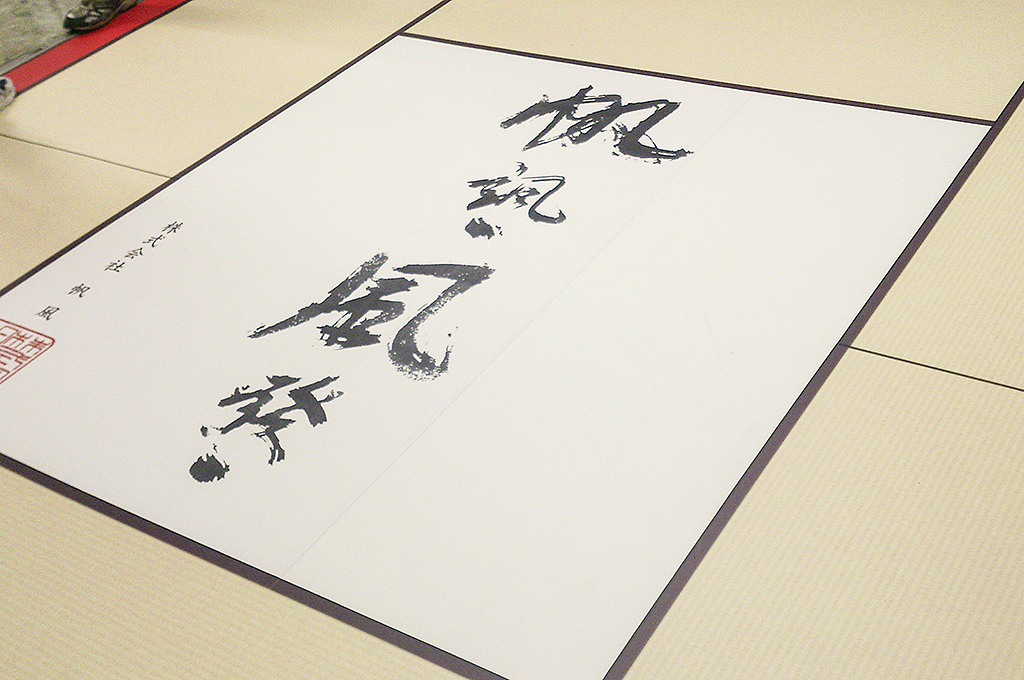 帆颯風祭
株式会社 帆風